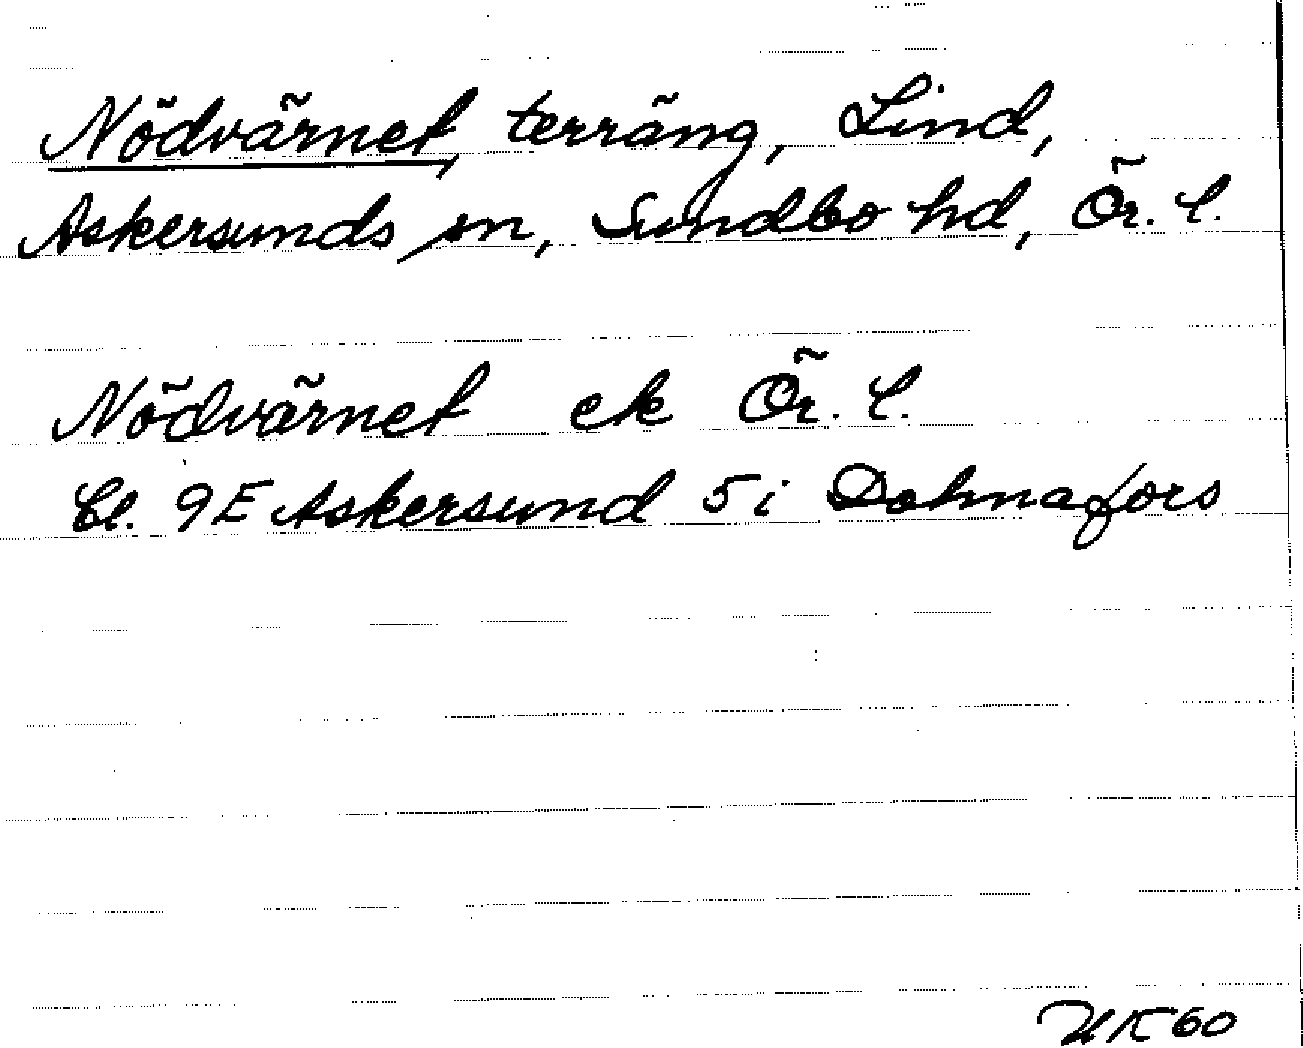 Nödvärnet, terräng, Lind,
Askersunds sn, Sundbo hd, Ör. l.
Nödvärnet ek Ör. l.
Bl. 9E Askersund 5 i Dohnafors